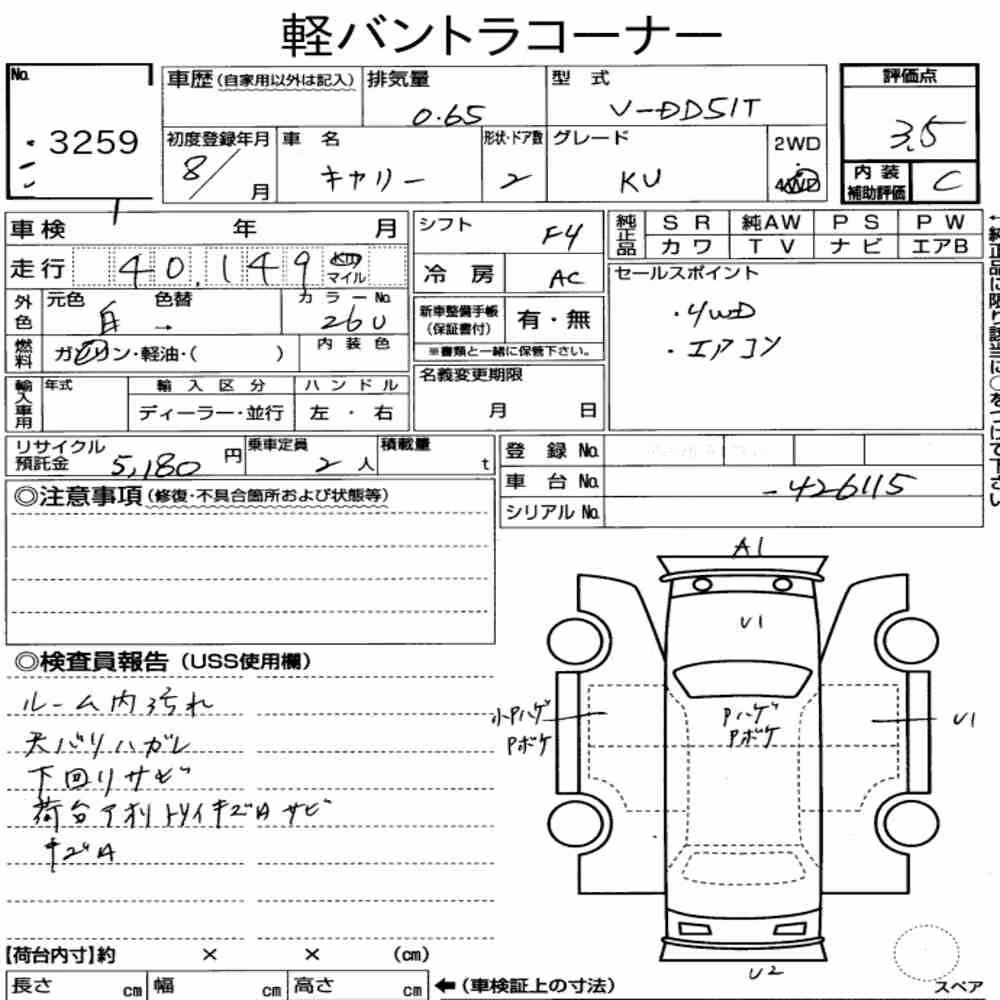 軽バントラコーナー
No.
3259
車歴(自家用以外は記入)
排気量
0.65
型 式
V-DD51T
評価点
3.5
初度登録年月
8/ 月
車 名
キャリー
形状・ドア数
2
グレード
KU
2WD
4WD
内 装
補助評価
C
車検 年 月
走行 40,149 km
マイル
外色
元色
白
色替
→
カラーNo.
26U
燃料
ガソリン・軽油・( )
内 装 色
輸入車用
年式
輸 入 区 分
ディーラー・並行
ハ ン ド ル
左 ・ 右
シフト
F4
冷 房
AC
新車整備手帳
(保証書付)
有・無
※書類と一緒に保管下さい。
名義変更期限
月 日
純正品
SR 純AW PS PW
カワ TV ナビ エアB
セールスポイント
・4WD
・エアコン
←純正品に限り該当に○をつけて下さい
リサイクル
預託金
5,180 円
乗車定員
2 人
積載量
t
登 録 No.
車 台 No.
-426115
シリアル No.
◎注意事項(修復・不具合箇所および状態等)
◎検査員報告(USS使用欄)
ルーム内汚れ
天バリハガレ
下回りサビ
荷台アオリトリイキズAサビ
キズA
A1
U1
小Pハゲ
Pボケ
Pハゲ
Pボケ
U1
U2
スペア
【荷台内寸】約 × × (cm)
長さ cm 幅 cm 高さ cm
←(車検証上の寸法)